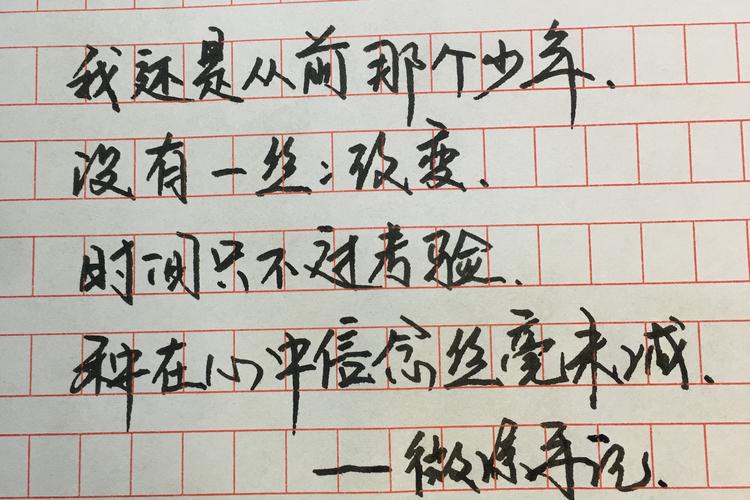 我还是从前那个少年.
没有一丝:改变.
时间只不过考验.
种在心中信念丝毫未减.
——微